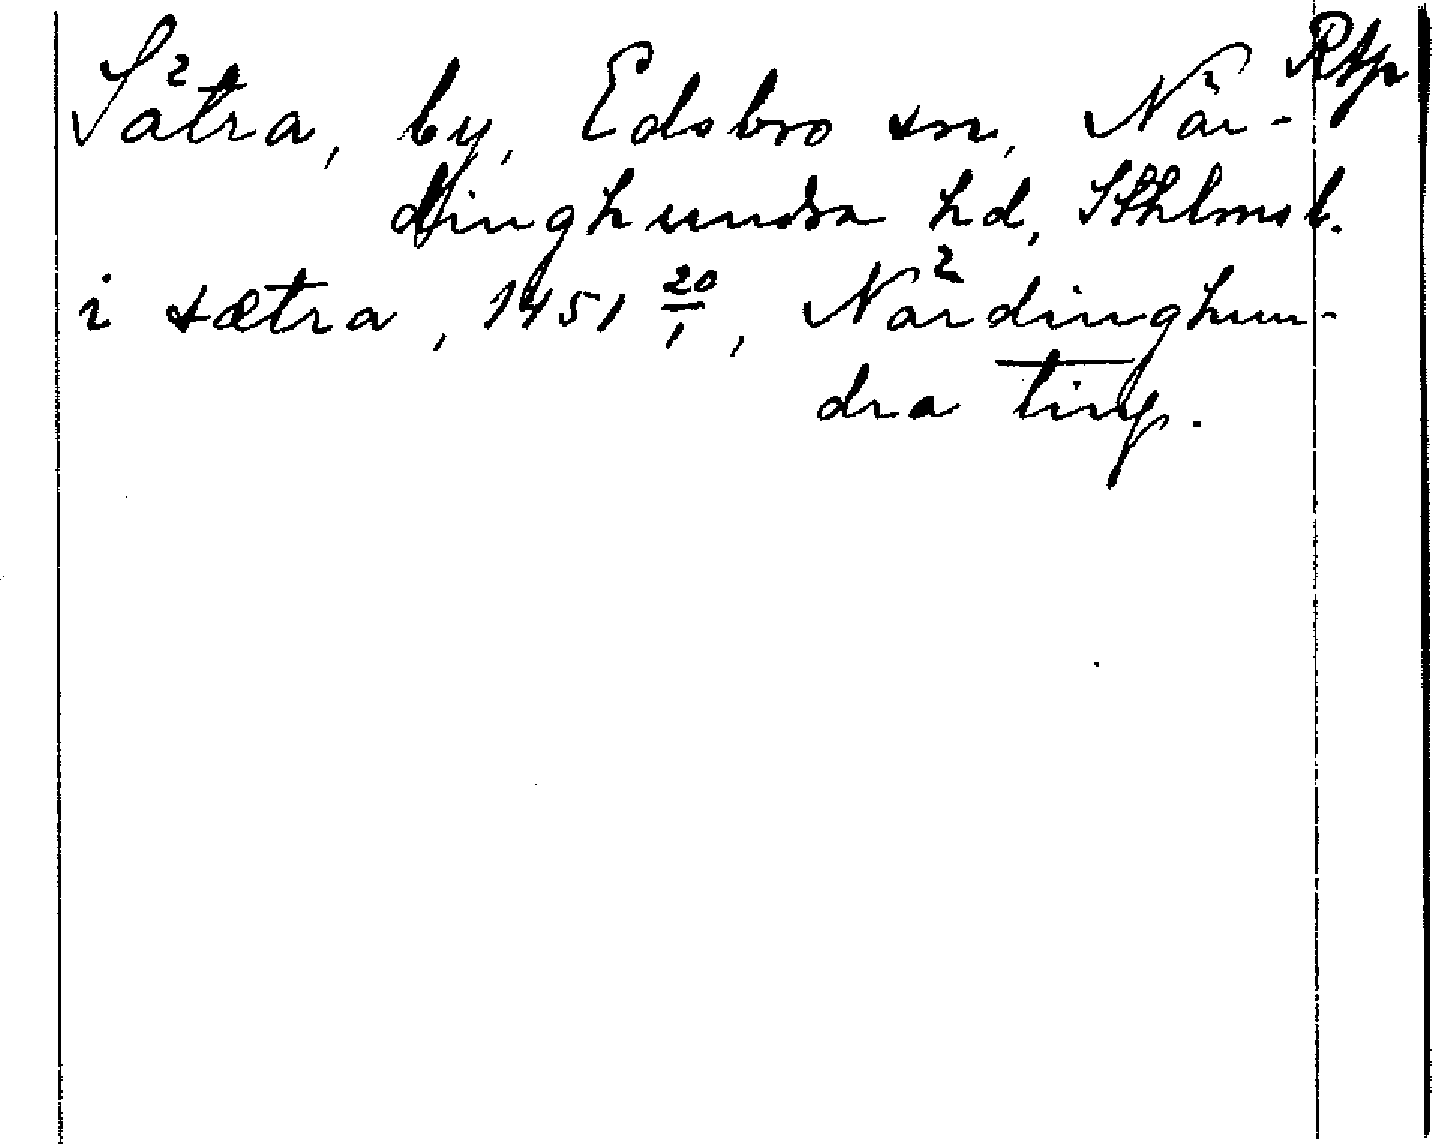 Rtp
Sätra, by, Edsbro sn, När-
dinghundra hd, Sthlms l.
i sætra, 1451 20/1, Närdinghun-
dra ting.